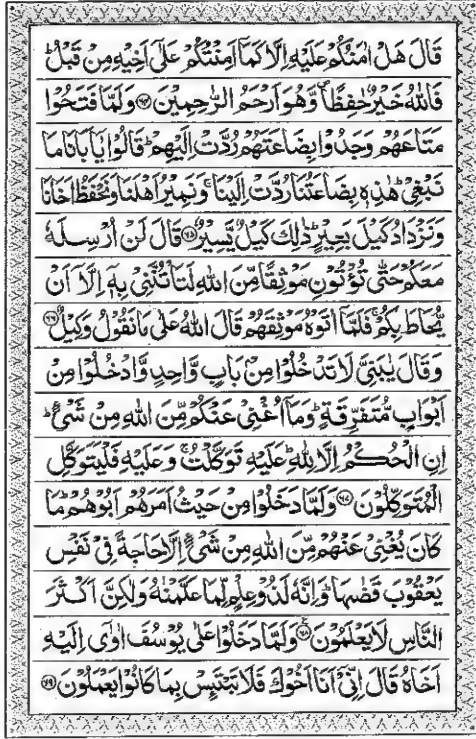 قَالَ هَلْ اٰمَنُكُمْ عَلَيْهِ اِلَّا كَمَآ اَمِنْتُكُمْ عَلٰٓى اَخِيْهِ مِنْ قَبْلُ ؕ
فَاللّٰهُ خَيْرٌ حٰفِظًا ۪ وَّهُوَ اَرْحَمُ الرّٰحِمِيْنَ ﴿۶۴﴾ وَلَمَّا فَتَحُوْا
مَتَاعَهُمْ وَجَدُوْا بِضَاعَتَهُمْ رُدَّتْ اِلَيْهِمْ ؕ قَالُوْا يٰۤاَبَانَا مَا
نَبْغِىْ ؕ هٰذِهٖ بِضَاعَتُنَا رُدَّتْ اِلَيْنَا ۚ وَنَمِيْرُ اَهْلَنَا وَنَحْفَظُ اَخَانَا
وَنَزْدَادُ كَيْلَ بَعِيْرٍ ؕ ذٰلِكَ كَيْلٌ يَّسِيْرٌ ﴿۶۵﴾ قَالَ لَنْ اُرْسِلَهٗ
مَعَكُمْ حَتّٰى تُؤْتُوْنِ مَوْثِقًا مِّنَ اللّٰهِ لَتَاْتُنَّنِىْ بِهٖۤ اِلَّاۤ اَنْ
يُّحَاطَ بِكُمْ ۚ فَلَمَّاۤ اٰتَوْهُ مَوْثِقَهُمْ قَالَ اللّٰهُ عَلٰى مَا نَقُوْلُ وَكِيْلٌ ﴿۶۶﴾
وَقَالَ يٰبَنِىَّ لَا تَدْخُلُوْا مِنْۢ بَابٍ وَّاحِدٍ وَّادْخُلُوْا مِنْ
اَبْوَابٍ مُّتَفَرِّقَةٍ ؕ وَمَاۤ اُغْنِىْ عَنْكُمْ مِّنَ اللّٰهِ مِنْ شَىْءٍ ؕ
اِنِ الْحُكْمُ اِلَّا لِلّٰهِ ؕ عَلَيْهِ تَوَكَّلْتُ ۚ وَعَلَيْهِ فَلْيَتَوَكَّلِ
الْمُتَوَكِّلُوْنَ ﴿۶۷﴾ وَلَمَّا دَخَلُوْا مِنْ حَيْثُ اَمَرَهُمْ اَبُوْهُمْ ؕ مَا
كَانَ يُغْنِىْ عَنْهُمْ مِّنَ اللّٰهِ مِنْ شَىْءٍ اِلَّا حَاجَةً فِىْ نَفْسِ
يَعْقُوْبَ قَضٰىهَا ؕ وَاِنَّهٗ لَذُوْ عِلْمٍ لِّمَا عَلَّمْنٰهُ وَلٰكِنَّ اَكْثَرَ
النَّاسِ لَا يَعْلَمُوْنَ ﴿۶۸﴾ وَلَمَّا دَخَلُوْا عَلٰى يُوْسُفَ اٰوٰۤى اِلَيْهِ
اَخَاهُ قَالَ اِنِّىْۤ اَنَا اَخُوْكَ فَلَا تَبْتَئِسْ بِمَا كَانُوْا يَعْمَلُوْنَ ﴿۶۹﴾